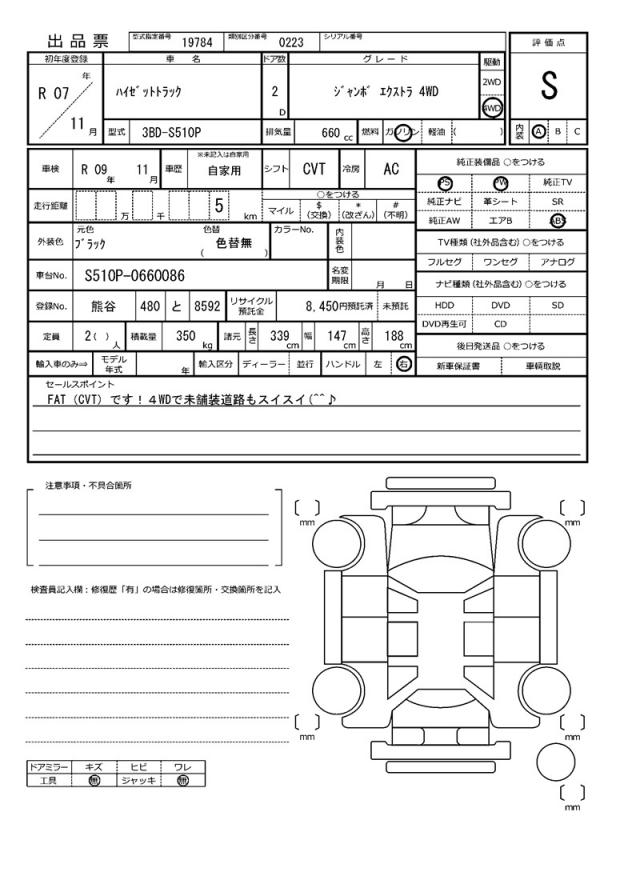 出品票 型式指定番号 19784 類別区分番号 0223 シリアル番号
評価点
S
内装 A B C
初年度登録 車名 ドア数 グレード 駆動
R 07 年 11 月 ﾊｲｾﾞｯﾄﾄﾗｯｸ 2 D ｼﾞｬﾝﾎﾞ ｴｸｽﾄﾗ 4WD 2WD 4WD
型式 3BD-S510P 排気量 660 cc 燃料 ガソリン 軽油 ( )
車検 R 09 年 11 月 車歴 ※未記入は自家用 自家用 シフト CVT 冷房 AC
走行距離 万 千 5 km ○をつける
マイル $ (交換) * (改ざん) # (不明)
外装色 元色 ﾌﾞﾗｯｸ 色替 ( 色替無 ) カラーNo. 内装色
車台No. S510P-0660086 名変期限 月 日
登録No. 熊谷 480 と 8592 リサイクル預託金 8,450円預託済 未預託
定員 2( ) 人 積載量 350 kg 諸元 長さ 339 cm 幅 147 cm 高さ 188 cm
輸入車のみ⇒ モデル年式 年 輸入区分 ディーラー 並行 ハンドル 左 右
純正装備品 ○をつける
PS PW 純正TV
純正ナビ 革シート SR
純正AW エアB ABS
TV種類 (社外品含む) ○をつける
フルセグ ワンセグ アナログ
ナビ種類 (社外品含む) ○をつける
HDD DVD SD
DVD再生可 CD
後日発送品 ○をつける
新車保証書 車輌取説
セールスポイント
FAT (CVT) です！4WDで未舗装道路もスイスイ(^^♪
注意事項・不具合箇所
検査員記入欄：修復歴「有」の場合は修復箇所・交換箇所を記入
ドアミラー キズ ヒビ ワレ
工具 無 ジャッキ 無
mm
mm
mm
mm
mm